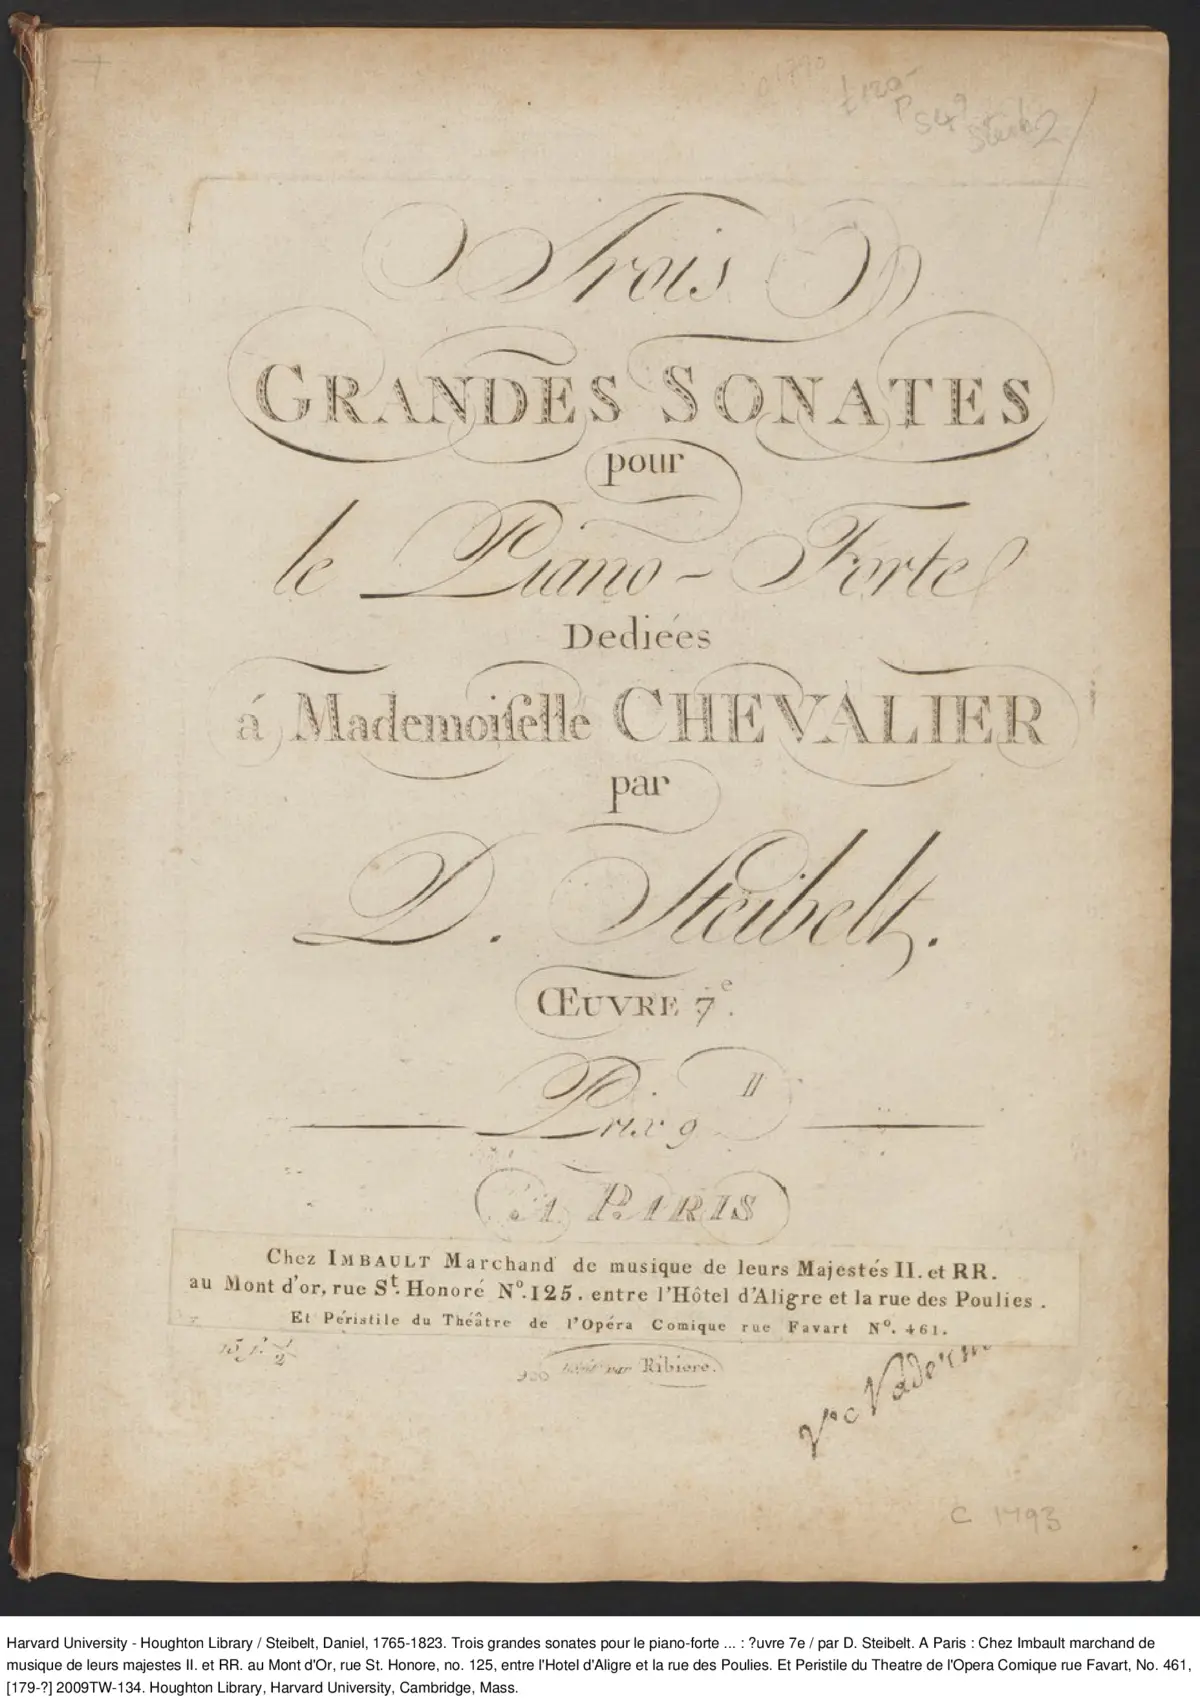 £120-
Trois
GRANDES SONATES
pour
le Piano-Forte
Dediées
á Mademoiſelle CHEVALIER
par
D. Steibelt.
ŒUVRE 7e.
Prix 9 ₶
A PARIS
Chez IMBAULT Marchand de musique de leurs Majestés II. et RR.
au Mont d'or, rue St. Honoré No. 125. entre l'Hôtel d'Aligre et la rue des Poulies.
Et Péristile du Théâtre de l'Opéra Comique rue Favart No. 461.
900 par Ribiere.
C 1793
Harvard University - Houghton Library / Steibelt, Daniel, 1765-1823. Trois grandes sonates pour le piano-forte ... : ?uvre 7e / par D. Steibelt. A Paris : Chez Imbault marchand de
musique de leurs majestes II. et RR. au Mont d'Or, rue St. Honore, no. 125, entre l'Hotel d'Aligre et la rue des Poulies. Et Peristile du Theatre de l'Opera Comique rue Favart, No. 461,
[179-?] 2009TW-134. Houghton Library, Harvard University, Cambridge, Mass.